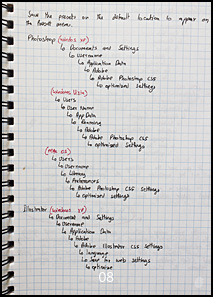 Save the presets on the default location to appear on
the Preset menu.
Photoshop (windos xp)
↳ Documents and Settings
↳ Username
↳ Application Data
↳ Adobe
↳ Adobe Photoshop CS5
↳ optimised Settings
(windows Vista)
↳ Users
↳ User Name
↳ App Data
↳ Roaming
↳ Adobe
↳ Adobe Photoshop CS5
↳ optimised Settings
(Mac OS)
↳ Users
↳ Username
↳ Library
↳ Preferences
↳ Adobe Photoshop CS5 Settings
↳ optimised settings
Illustrator (windows XP)
↳ Document and Settings
↳ Username
↳ Application Data
↳ Adobe
↳ Adobe Illustrator CS5 settings
↳ language
↳ Save for web settings
↳ optimise
08